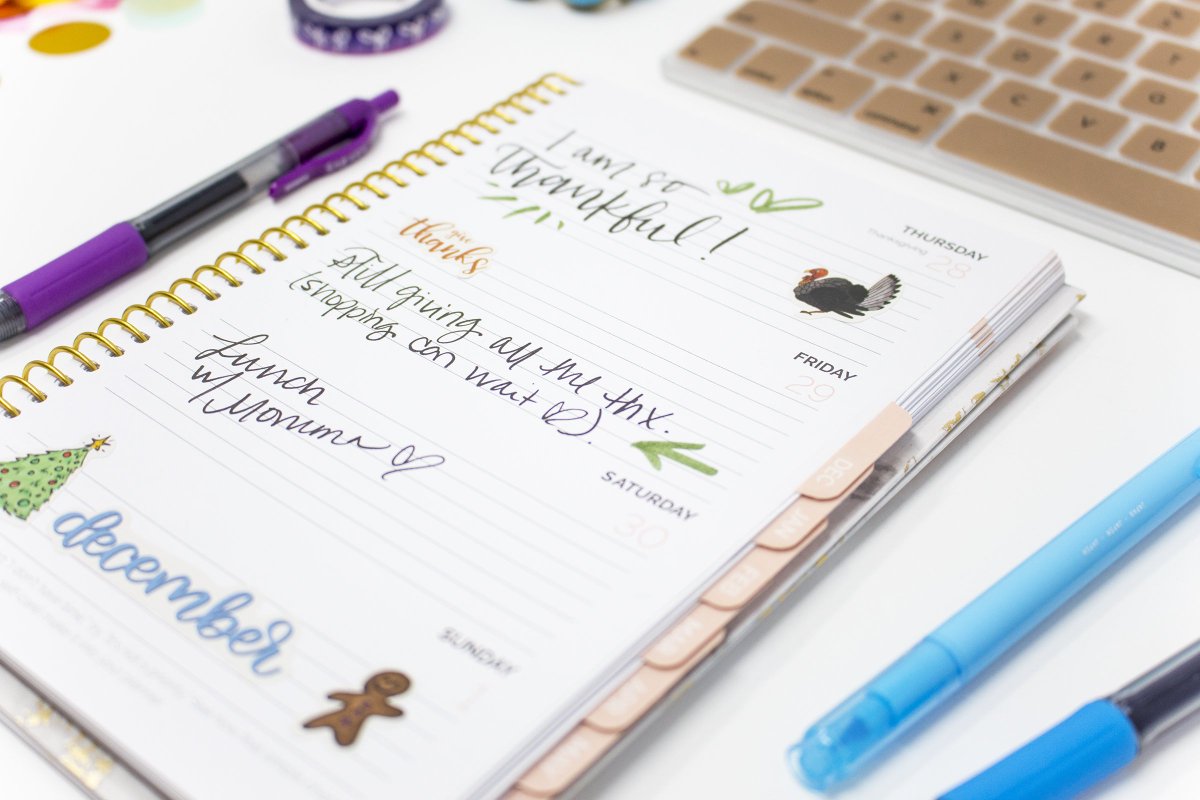 I am so
Thankful!
THURSDAY
Thanksgiving
28
give
thanks
Still giving all the thx.
(shopping can wait ♡).
FRIDAY
29
Lunch
w/ Momma ♡
SATURDAY
30
december
SUNDAY
1
DEC
JAN
FEB
MAR
APR
MAY
Z
X
C
V
B
G
command
option